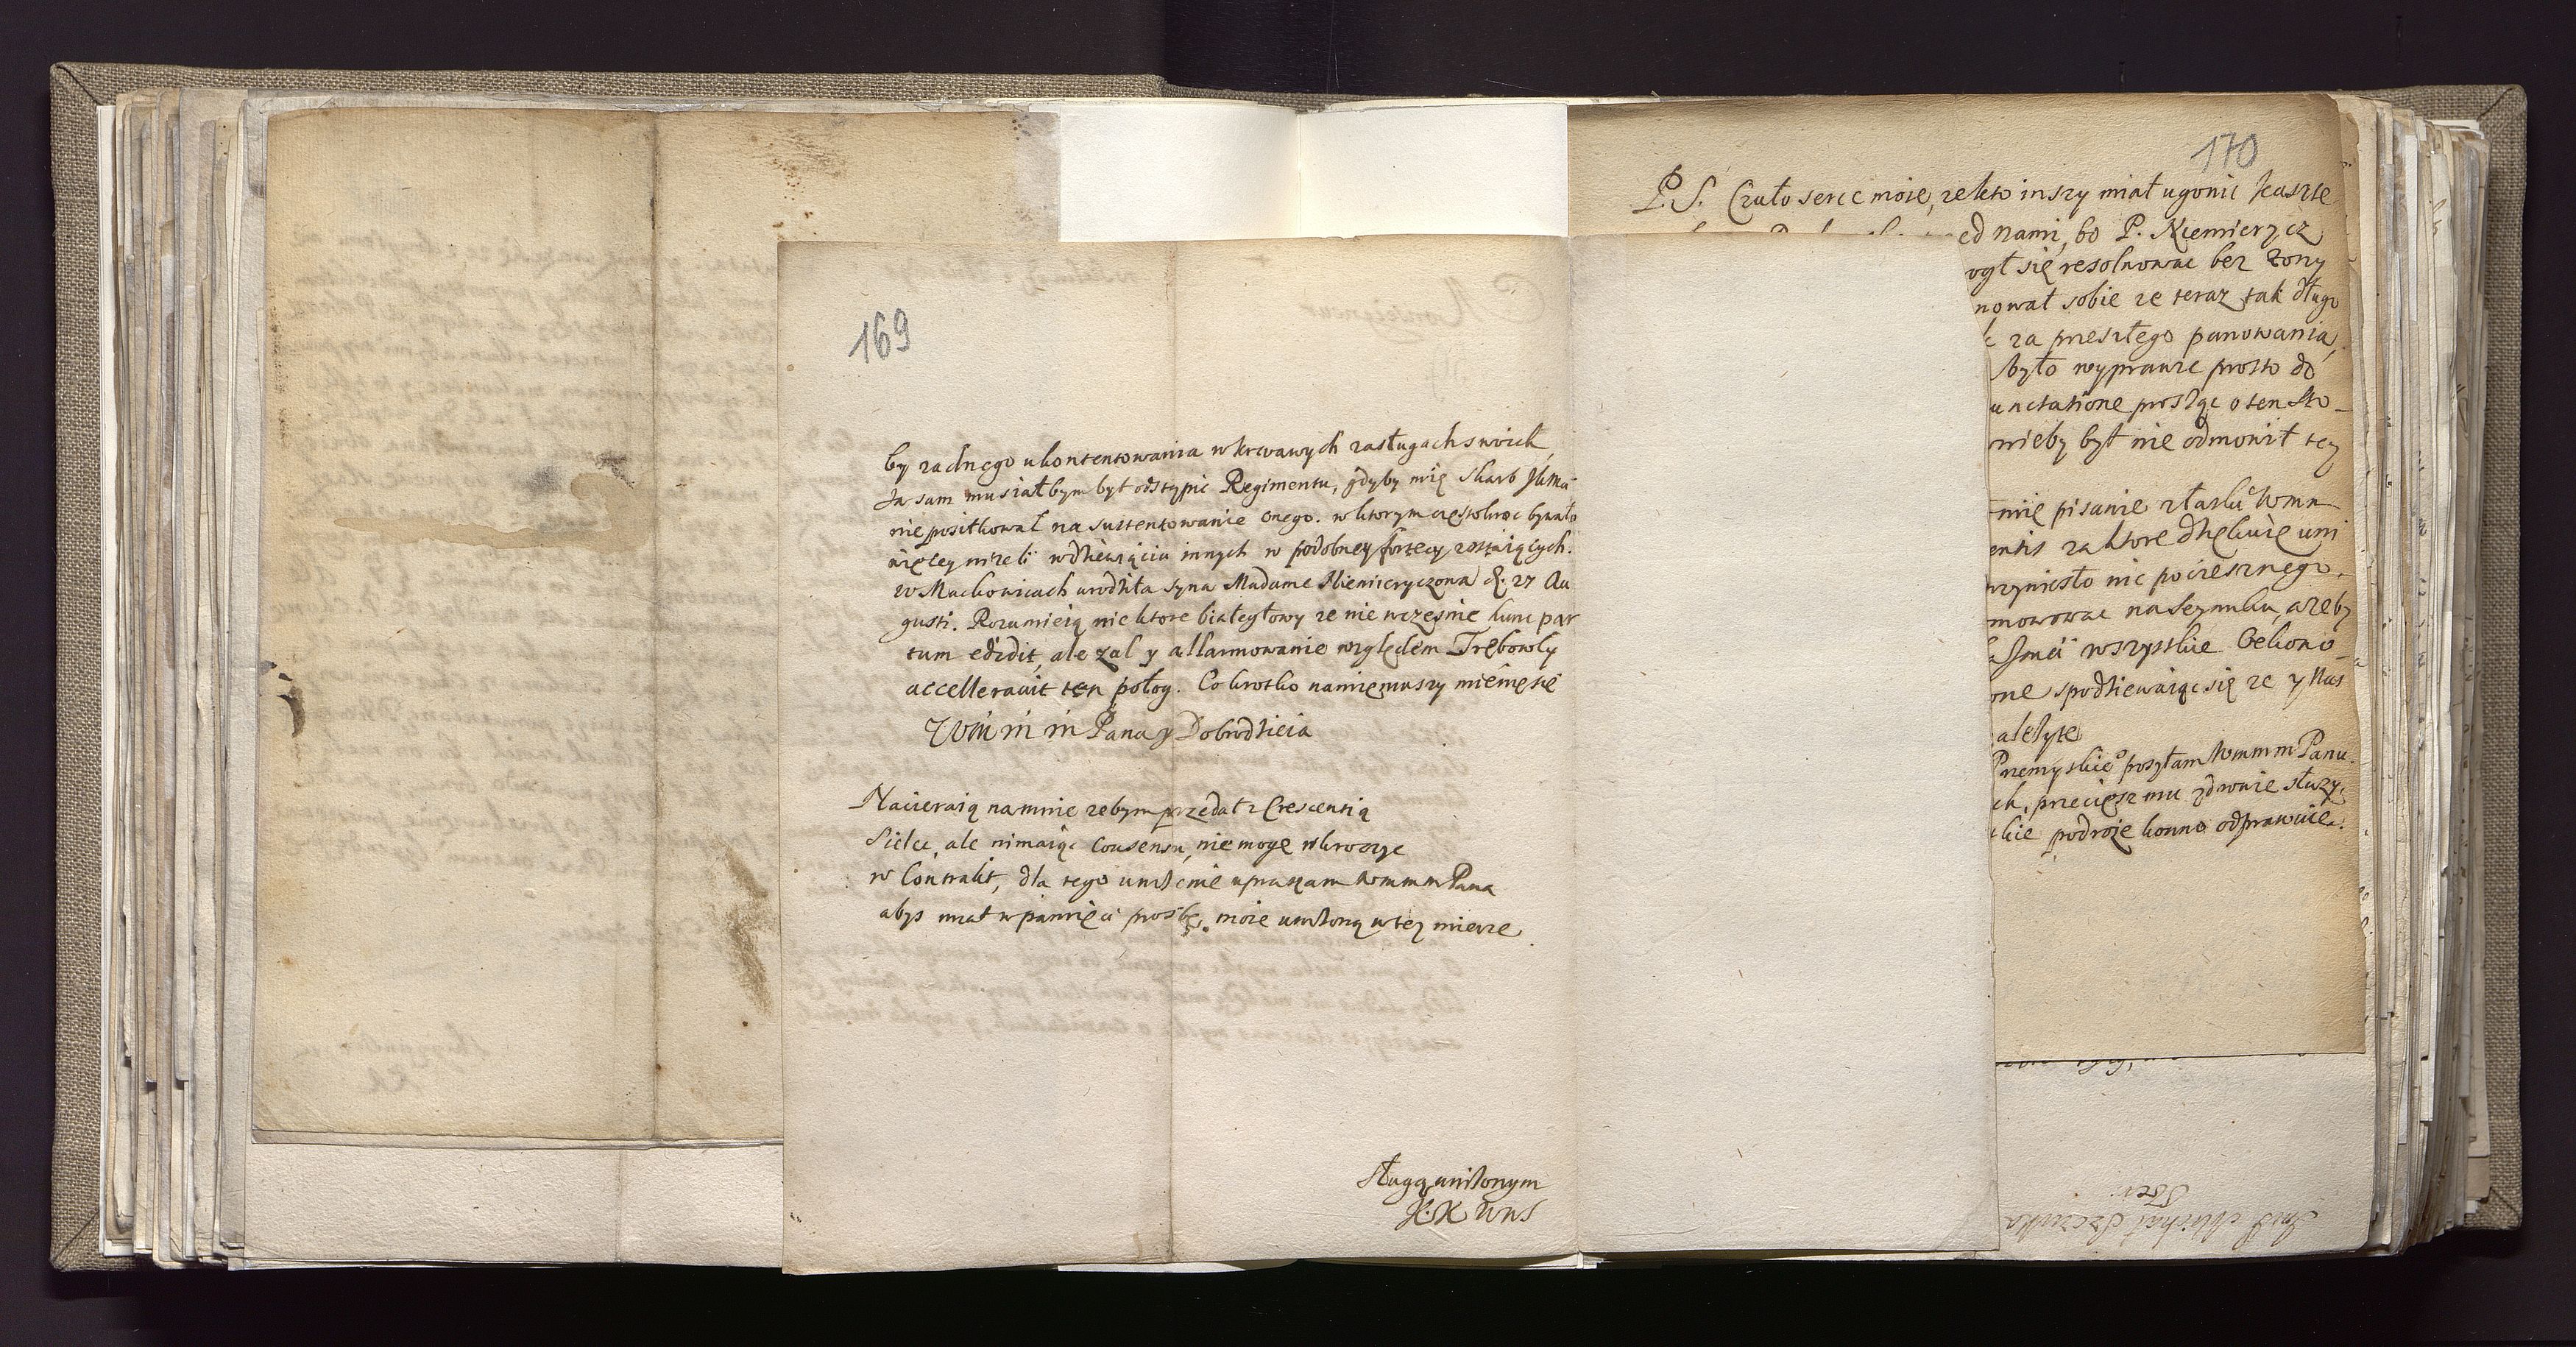 169
by zadnego ukontentowania w krwawych zasługach swoich,
Ja sam musiałbym był odstąpic Regimentu, gdyby mię Skarb
nie posiłkował na sustentowanie onego. w ktorym częstokroc bywało
więcey nizeli w dziewiąciu innych w podobney fortecy zostaiących.
W Mackowicach urodziła syna Madame Niemieryczowa d. 27 Au
gusti. Rozumieią niektore białegłowy ze nie wczesnie hunc par
tum edidit, ale zal y allarmowanie względem Trębowly
accelleravit ten połog. Co krotko namieniwszy mienię się
Wm m m Pana y Dobrodzieia
Nacieraią na mnie zebym przedał z Crescentią
Sielec, ale nimaiąc Consensu, nie mogę wkroczyc
w Contrakt, dla tego unizenie upraszam Wmmm Pana
abys miał w pamięci prosbę moię unizoną w tey mierze
sługą unizonym
K. K WNS
170
P.S. Czuło serce moie, ze kto inszy miał ugonic
ed nami, bo P. Niemierycz
ogł się resolwowac bez zony
nował sobie ze teraz tak długo
za preszłego panowania,
było wyprawic prosto do
unctatione prosząc o ten Sto-
nieby był nie odmowił tey
mię pisanie z łaski Wmm
entis za ktore dziękuię uni
rzyniosło nic pociesznego.
mowowac na Seymiku, azeby
Jmci wszystkie Oekono-
one spodziewaiąc się ze y Nas
alezyte
Przemyskiego posyłam Wmmm Panu.
ch, przecięsz mu zdrowie słuzy,
kie podroze konno odprawuie.
Michał Szczuka